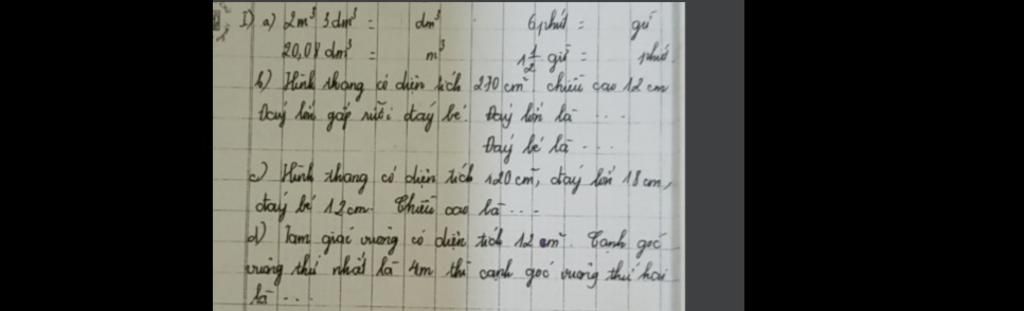 I) a) 2m³ 3dm³ = dm³ 6 phút = giờ
20,08 dm³ = m³ 1 1/2 giờ = phút
b) Hình thang có diện tích 270 cm² chiều cao 12 cm
Đáy lớn gấp rưỡi đáy bé. Đáy lớn là ...
Đáy bé là ...
c) Hình thang có diện tích 120 cm², đáy lớn 18 cm,
đáy bé 12 cm. Chiều cao là ...
d) Tam giác vuông có diện tích 12 cm². Cạnh góc
vuông thứ nhất là 4m thì cạnh góc vuông thứ hai
là ...